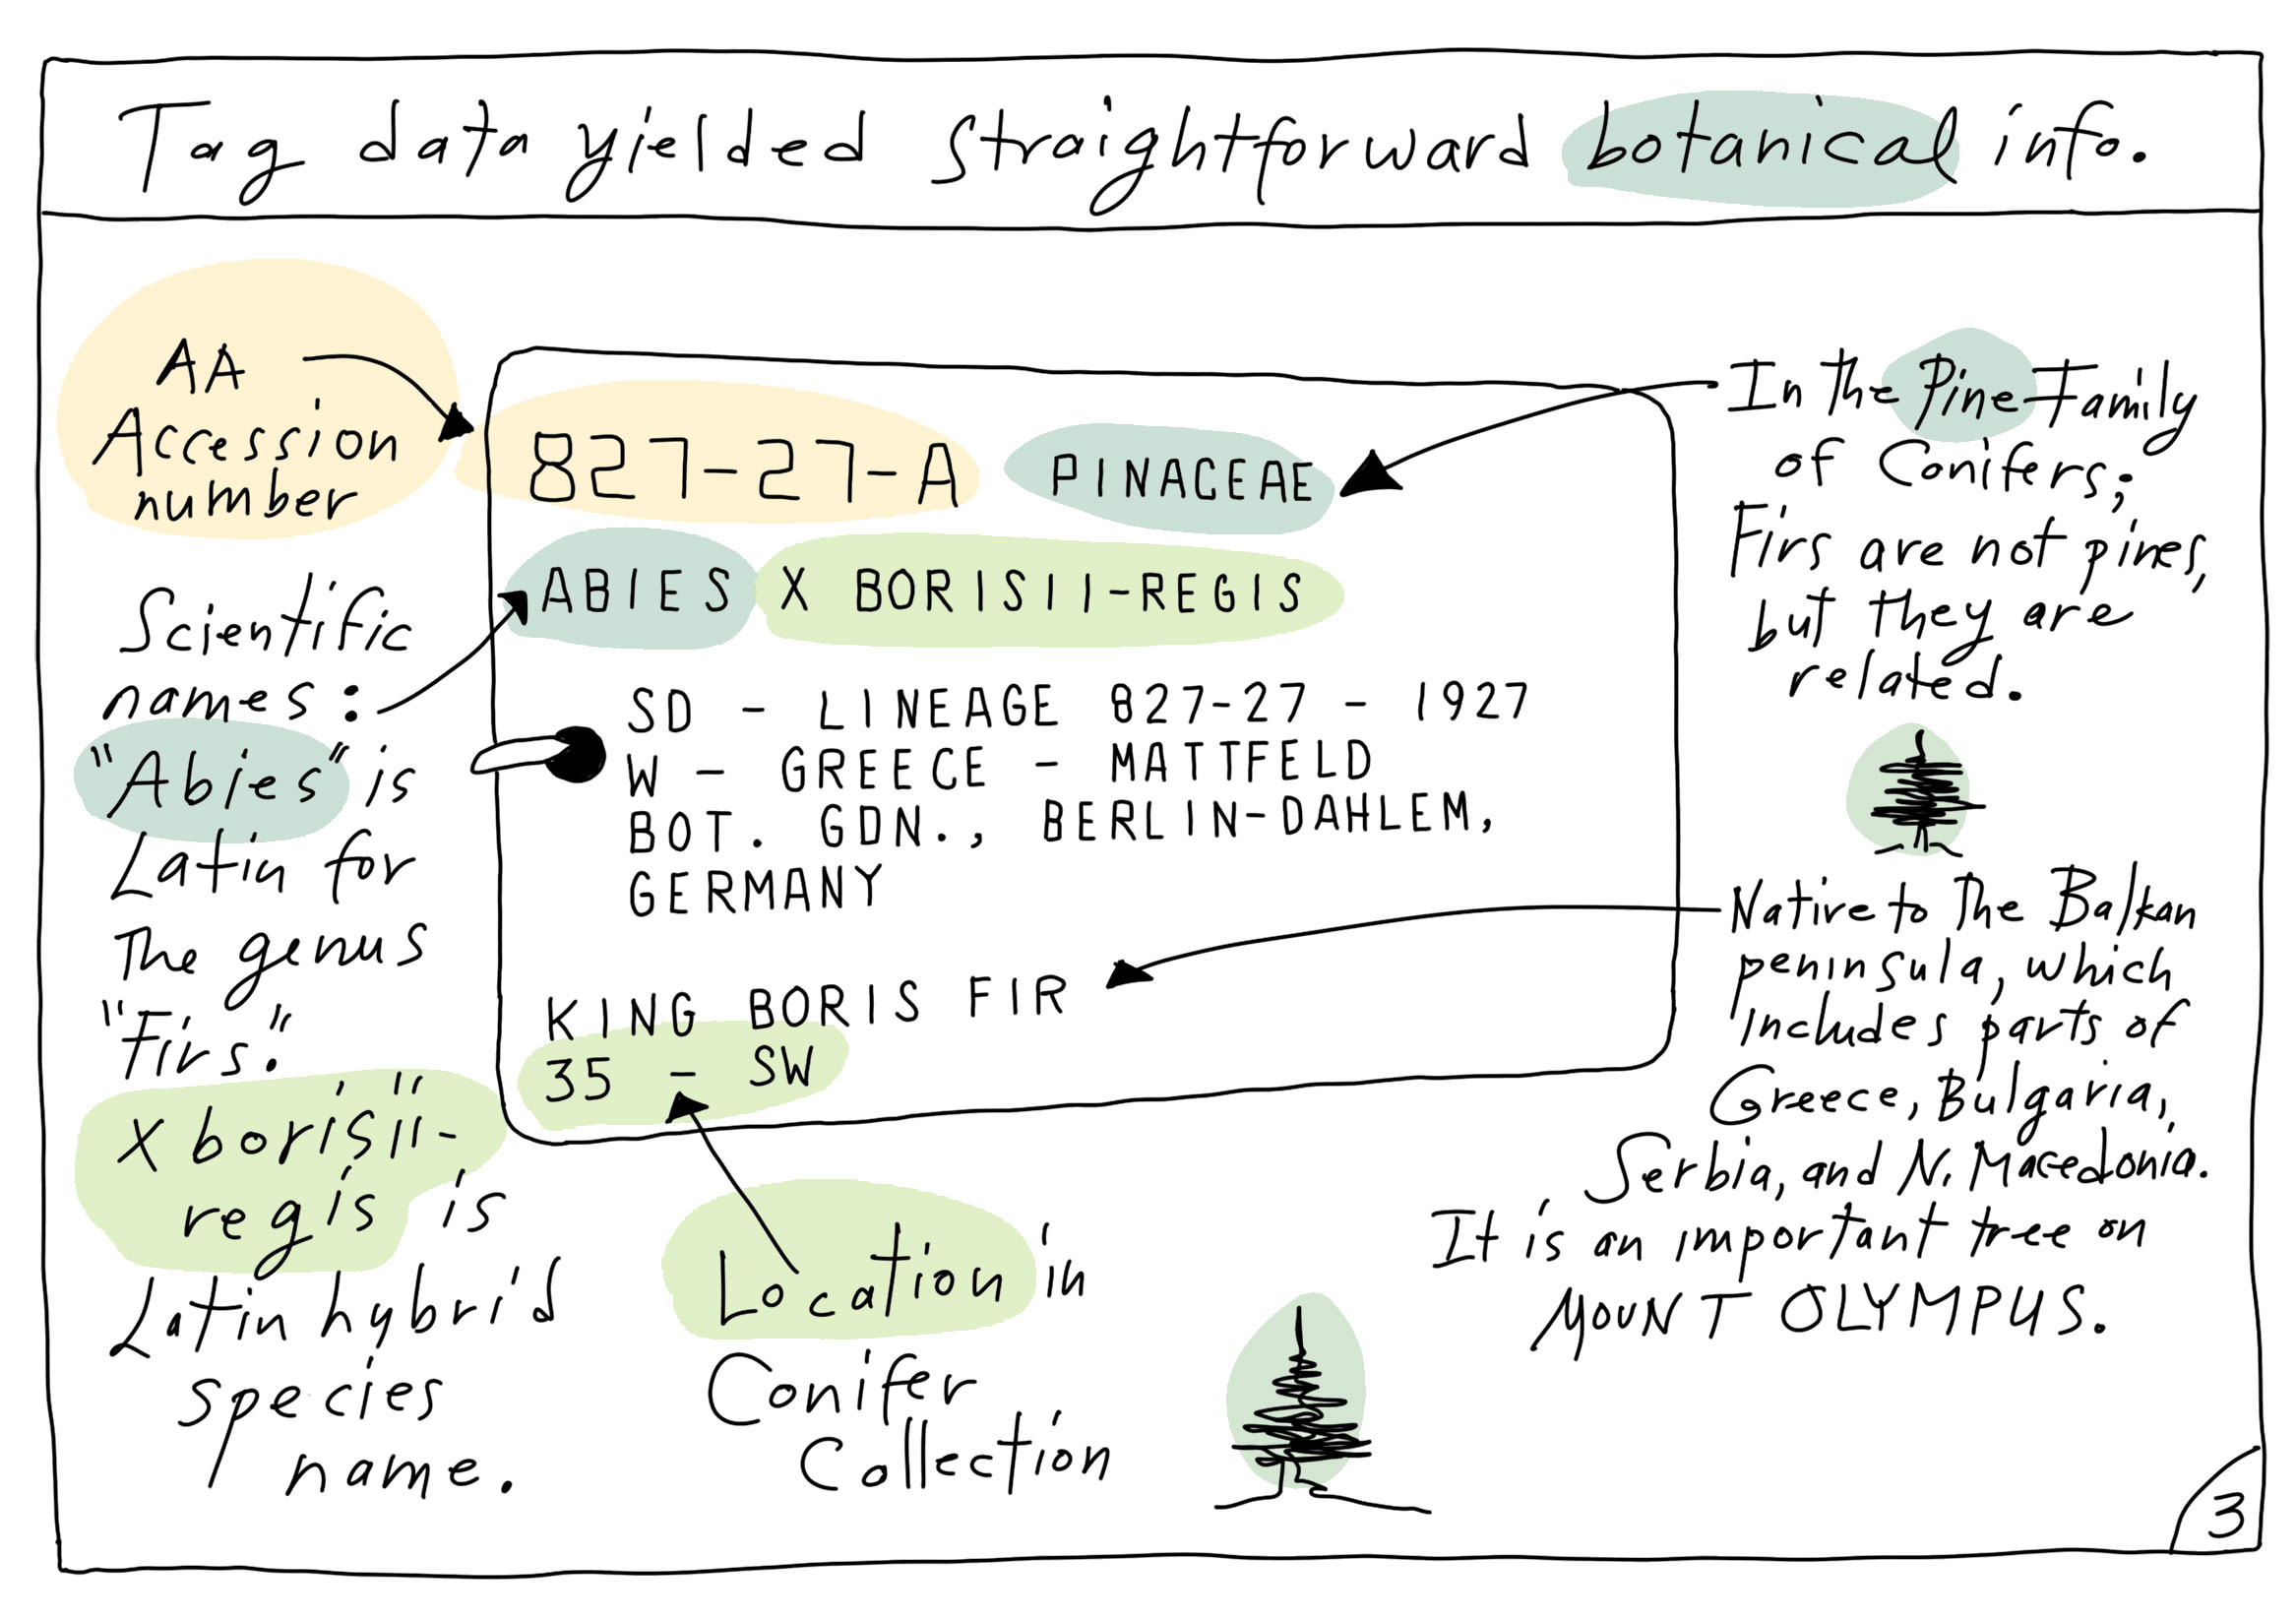 Tag data yielded straightforward botanical info.
AA
Accession
number
Scientific
names:
"Abies" is
Latin for
The genus
"Firs."
X borisii-
regis is
Latin hybrid
species
name.
827-27-A PINACEAE
ABIES X BORISII-REGIS
SD - LINEAGE 827-27 - 1927
W - GREECE - MATTFELD
BOT. GDN., BERLIN-DAHLEM,
GERMANY
KING BORIS FIR
35 - SW
Location in
Conifer
Collection
In The Pine Family
of Conifers;
Firs are not pines,
but they are
related.
Native to The Balkan
peninsula, which
includes parts of
Greece, Bulgaria,
Serbia, and N. Macedonia.
It is an important tree on
MOUNT OLYMPUS.
3